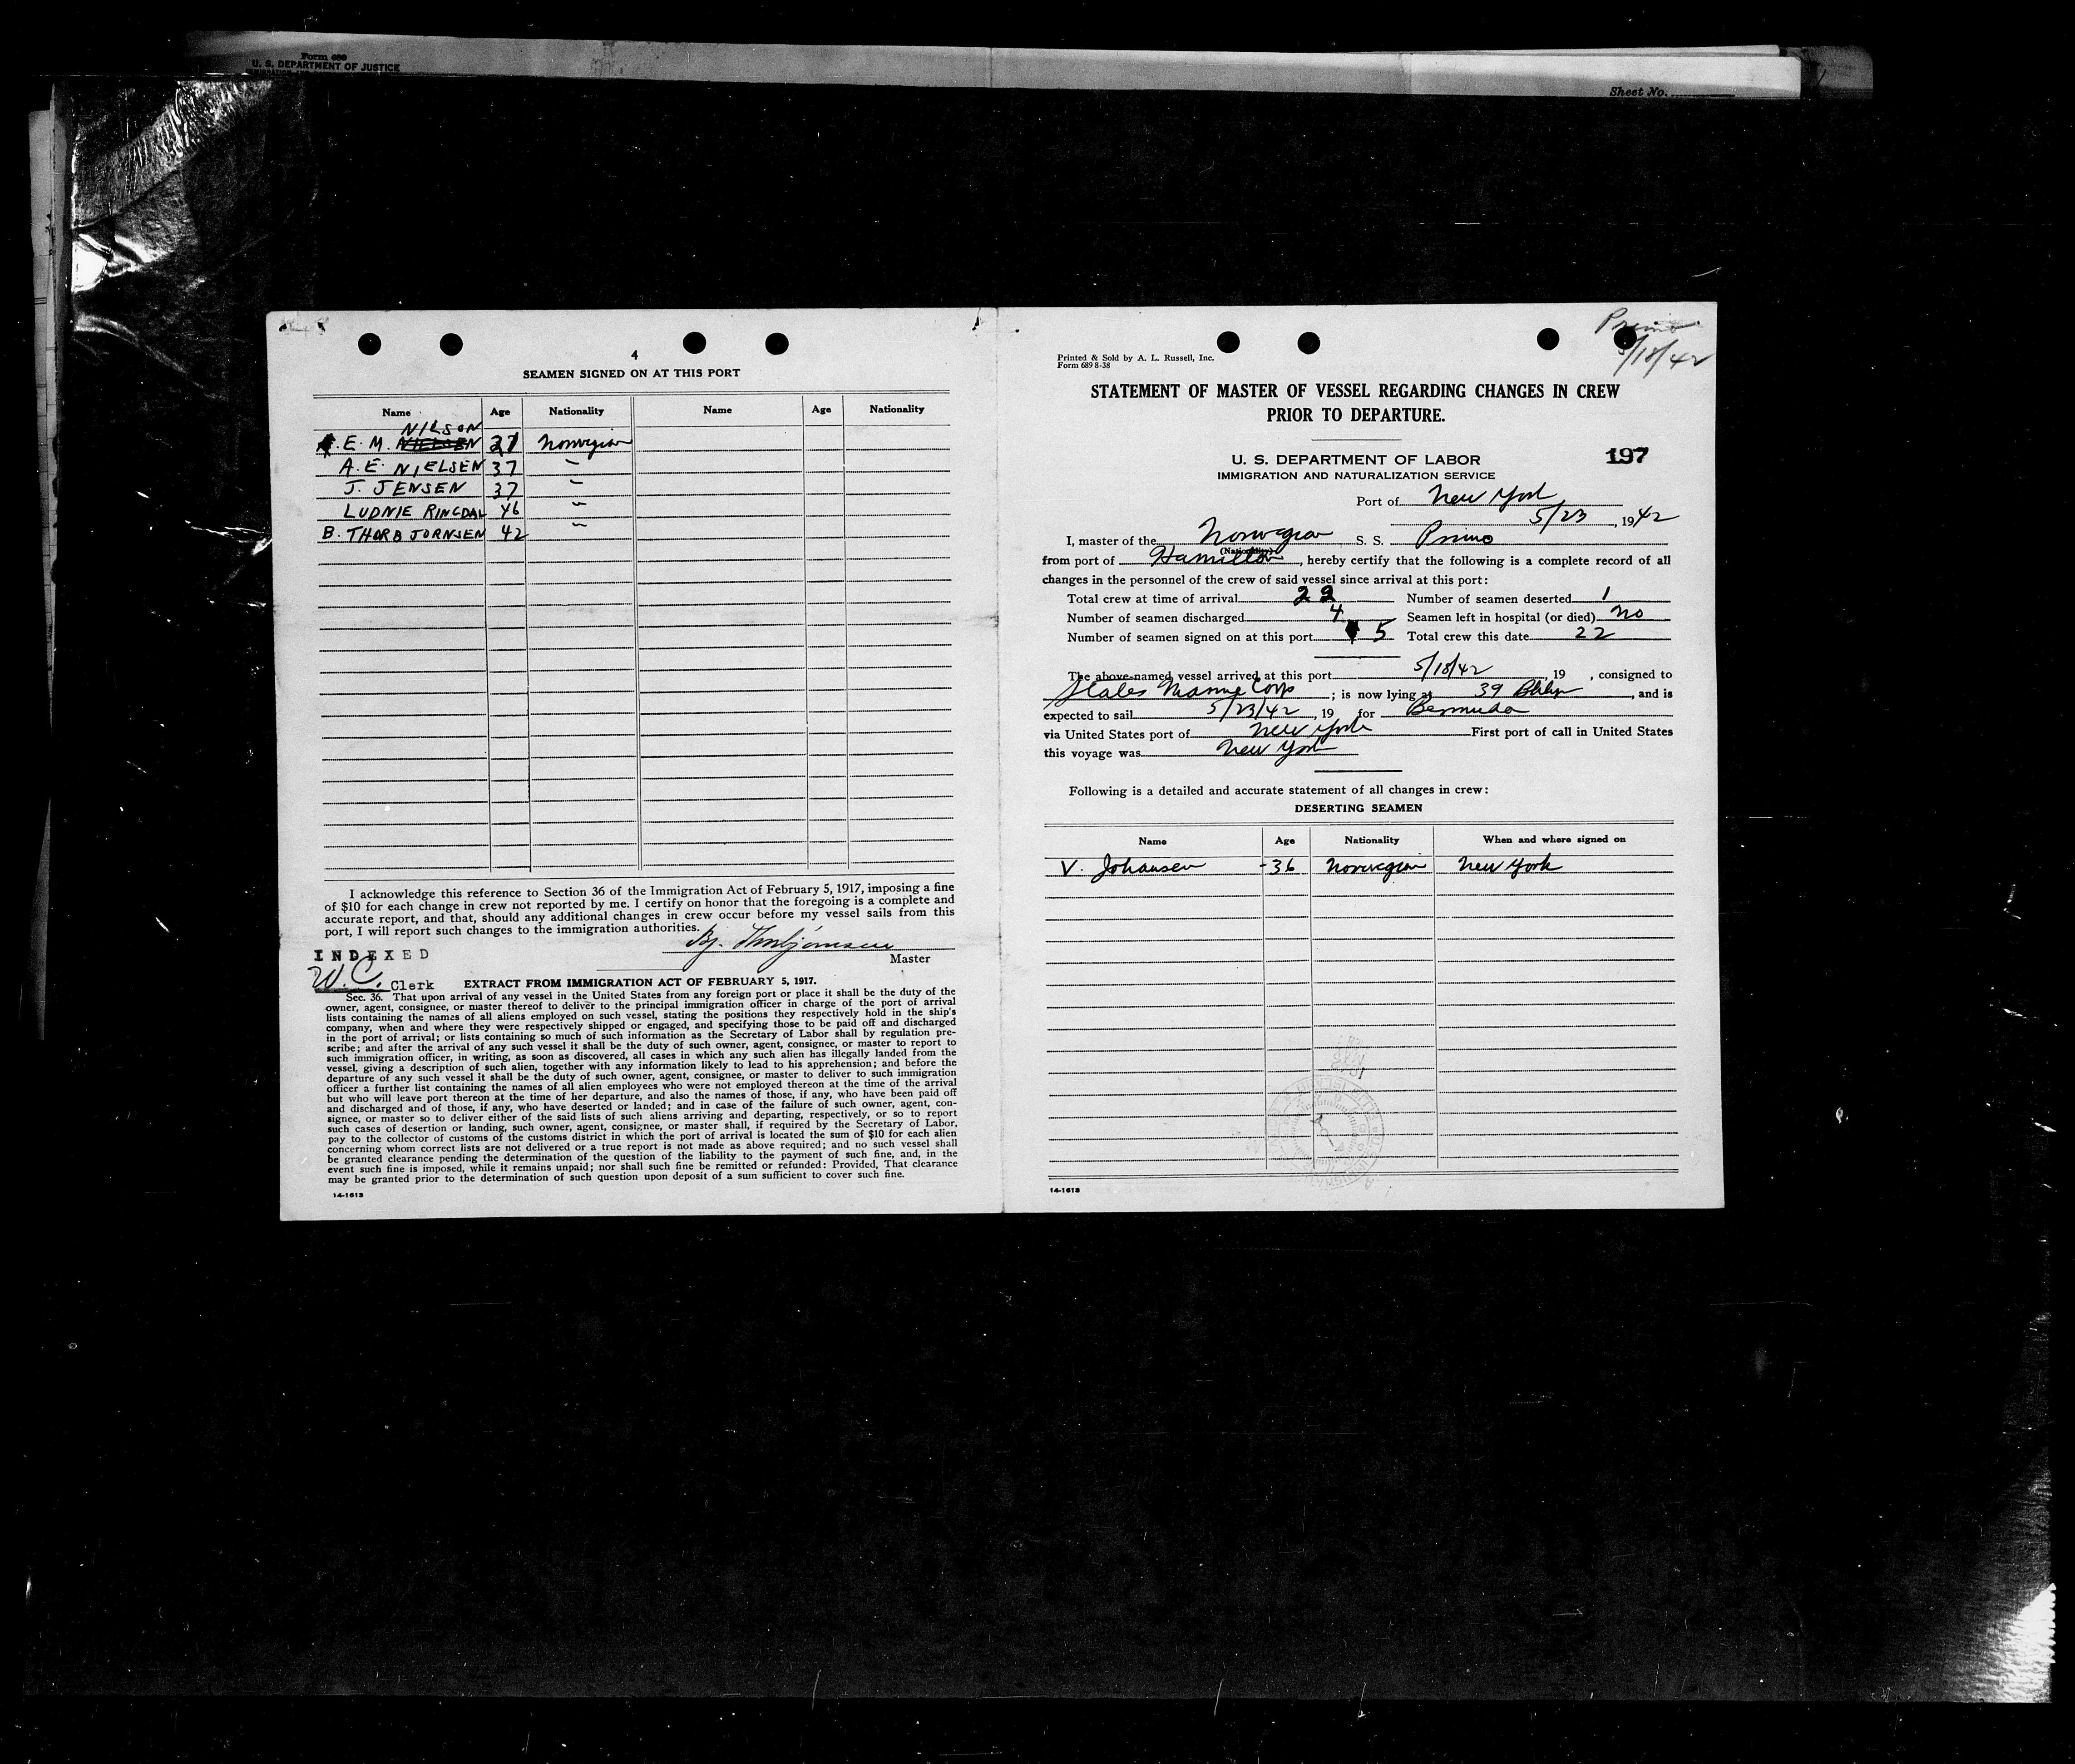 Form 680
U. S. DEPARTMENT OF JUSTICE
Sheet No.
4
SEAMEN SIGNED ON AT THIS PORT
Name Age Nationality Name Age Nationality
NILSON
E. M. NIELSEN 27 Norwegian
A. E. NIELSEN 37 "
J. JENSEN 37 "
LUDNIE RINGDAL 46 "
B. THORBJORNSEN 42 "
I acknowledge this reference to Section 36 of the Immigration Act of February 5, 1917, imposing a fine
of $10 for each change in crew not reported by me. I certify on honor that the foregoing is a complete and
accurate report, and that, should any additional changes in crew occur before my vessel sails from this
port, I will report such changes to the immigration authorities.
Bj. Thorbjornsen
Master
INDEXED
W.C. Clerk
EXTRACT FROM IMMIGRATION ACT OF FEBRUARY 5, 1917.
Sec. 36. That upon arrival of any vessel in the United States from any foreign port or place it shall be the duty of the
owner, agent, consignee, or master thereof to deliver to the principal immigration officer in charge of the port of arrival
lists containing the names of all aliens employed on such vessel, stating the positions they respectively hold in the ship's
company, when and where they were respectively shipped or engaged, and specifying those to be paid off and discharged
in the port of arrival; or lists containing so much of such information as the Secretary of Labor shall by regulation pre-
scribe; and after the arrival of any such vessel it shall be the duty of such owner, agent, consignee, or master to report to
such immigration officer, in writing, as soon as discovered, all cases in which any such alien has illegally landed from the
vessel, giving a description of such alien, together with any information likely to lead to his apprehension; and before the
departure of any such vessel it shall be the duty of such owner, agent, consignee, or master to deliver to such immigration
officer a further list containing the names of all alien employees who were not employed thereon at the time of the arrival
but who will leave port thereon at the time of her departure, and also the names of those, if any, who have been paid off
and discharged and of those, if any, who have deserted or landed; and in case of the failure of such owner, agent, con-
signee, or master so to deliver either of the said lists of such aliens arriving and departing, respectively, or so to report
such cases of desertion or landing, such owner, agent, consignee, or master shall, if required by the Secretary of Labor,
pay to the collector of customs of the customs district in which the port of arrival is located the sum of $10 for each alien
concerning whom correct lists are not delivered or a true report is not made as above required; and no such vessel shall
be granted clearance pending the determination of the question of the liability to the payment of such fine, and, in the
event such fine is imposed, while it remains unpaid; nor shall such fine be remitted or refunded: Provided, That clearance
may be granted prior to the determination of such question upon deposit of a sum sufficient to cover such fine.
14-1613
Primo
5/18/42
Printed & Sold by A. L. Russell, Inc.
Form 689 8-38
STATEMENT OF MASTER OF VESSEL REGARDING CHANGES IN CREW
PRIOR TO DEPARTURE.
U. S. DEPARTMENT OF LABOR
IMMIGRATION AND NATURALIZATION SERVICE
197
Port of New York
5/23, 1942
I, master of the Norwegian S. S. Primo
(Nationality)
from port of Hamilton, hereby certify that the following is a complete record of all
changes in the personnel of the crew of said vessel since arrival at this port:
Total crew at time of arrival 22 Number of seamen deserted 1
Number of seamen discharged 4 Seamen left in hospital (or died) no
Number of seamen signed on at this port 5 Total crew this date 22
The above-named vessel arrived at this port 5/18/42, 19 , consigned to
States Marine Corp; is now lying at 39 Bklyn, and is
expected to sail 5/23/42, 19 for Bermuda
via United States port of New York First port of call in United States
this voyage was New York
Following is a detailed and accurate statement of all changes in crew:
DESERTING SEAMEN
Name Age Nationality When and where signed on
V. Johansen 36 Norwegian New York
14-1613